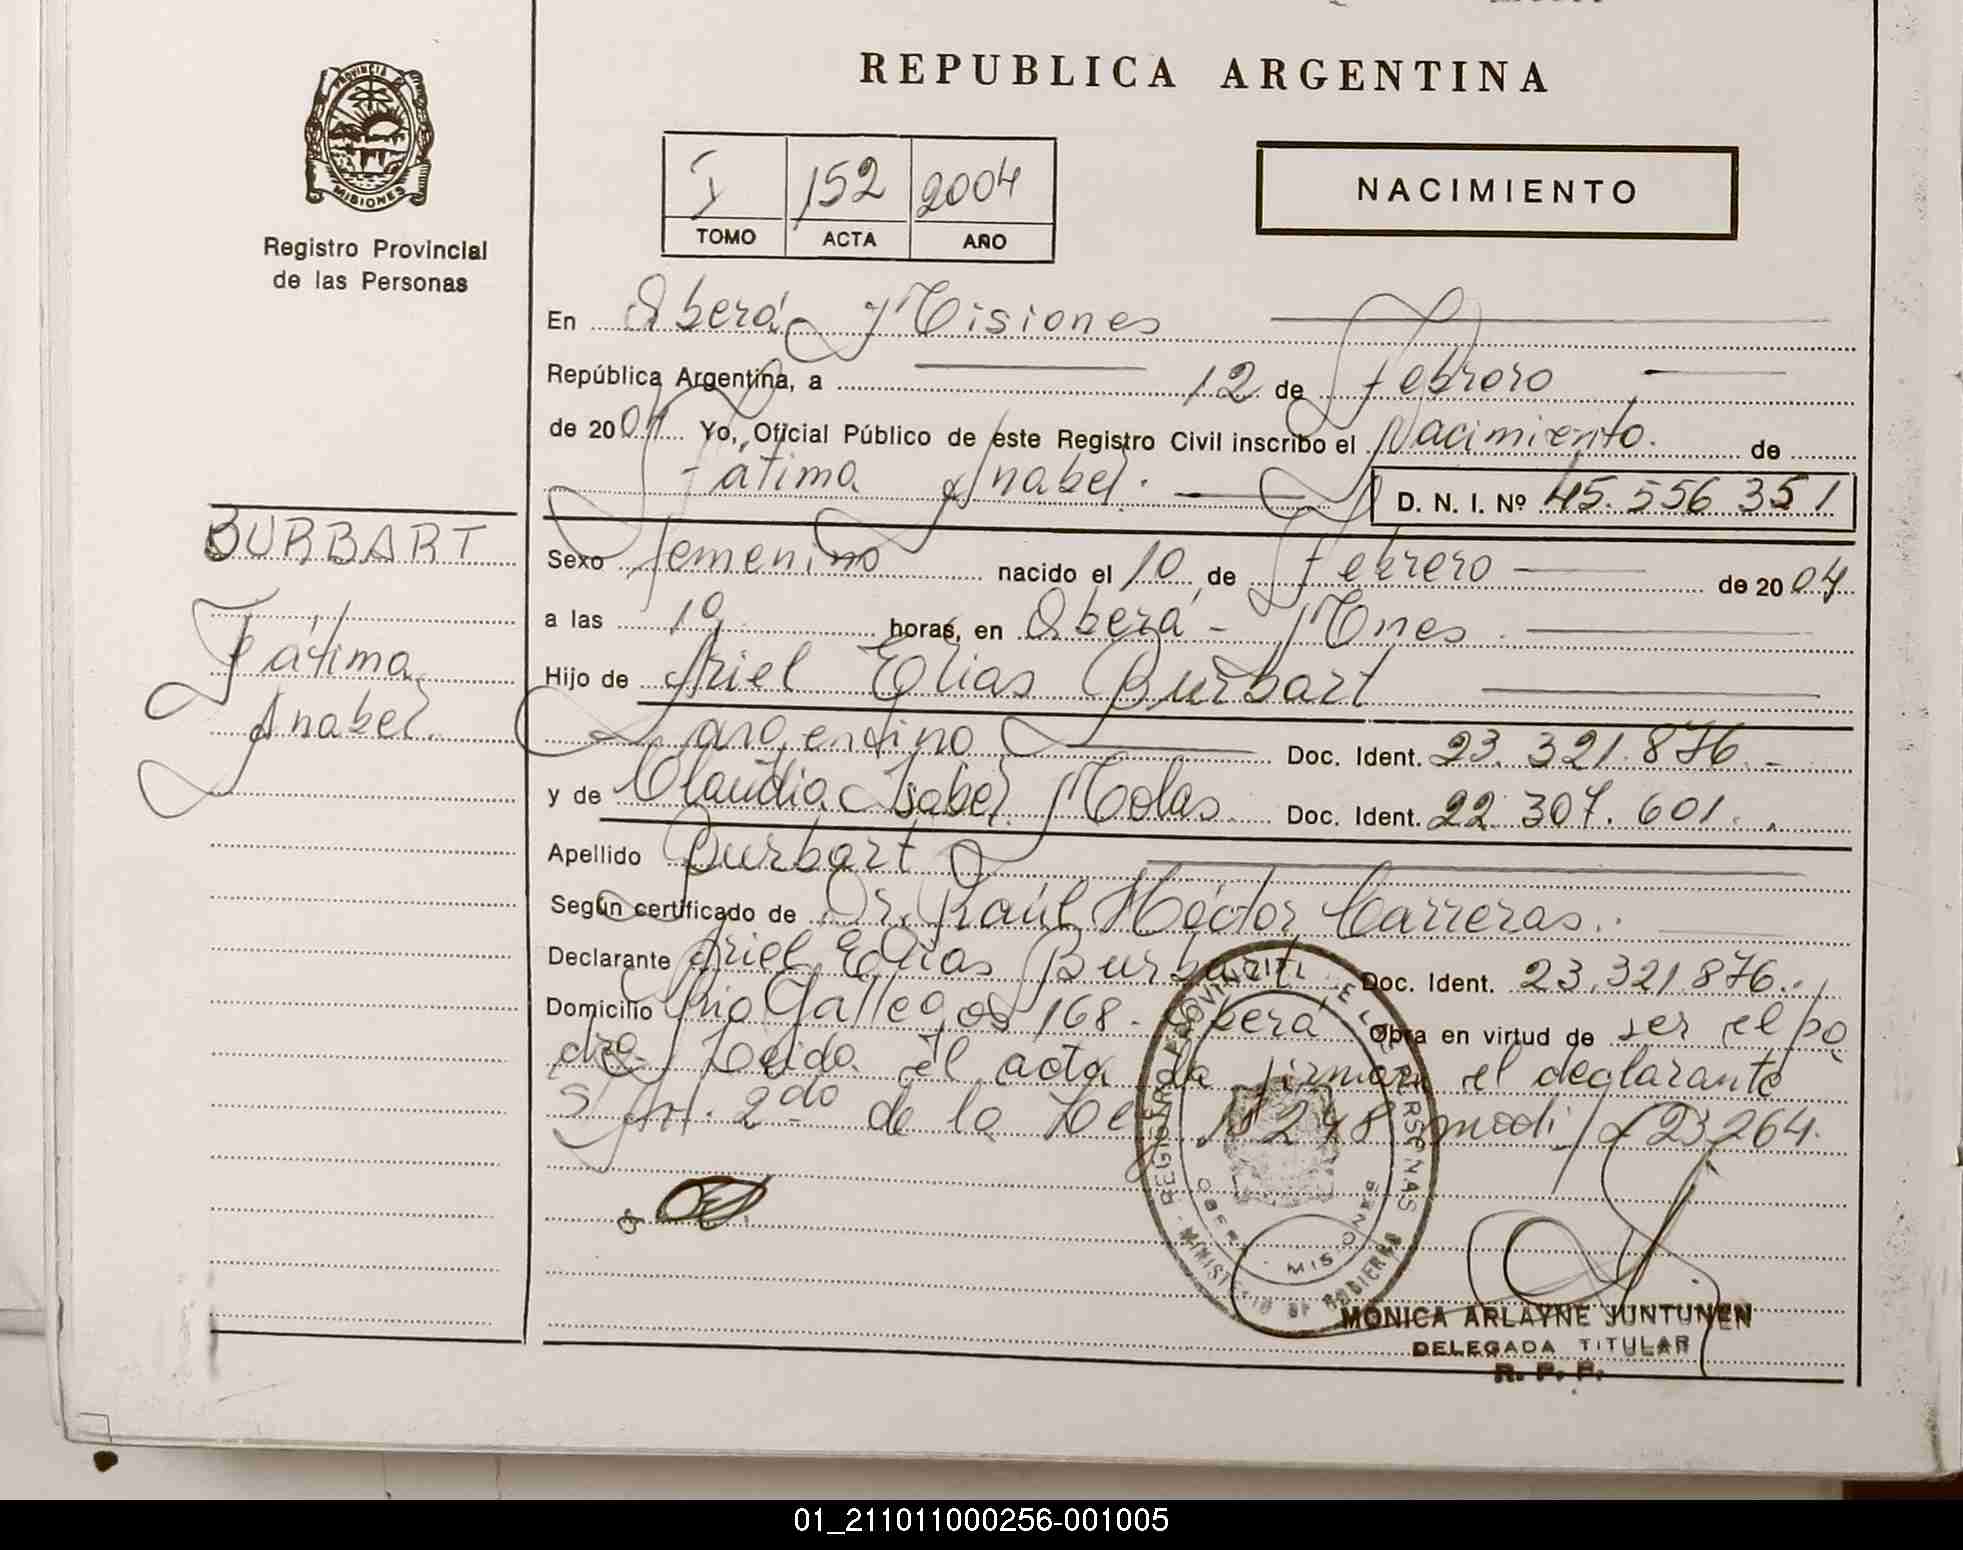 REPUBLICA ARGENTINA
PROVINCIA
MISIONES
Registro Provincial
de las Personas
I 152 2004
TOMO ACTA AÑO
NACIMIENTO
En Oberá Misiones
República Argentina, a 12 de Febrero
de 2004 Yo, Oficial Público de este Registro Civil inscribo el Nacimiento. de
Fátima Anabel. D. N. I. Nº 45.556 351
BURBART
Fátima
Anabel.
Sexo femenino nacido el 10 de Febrero de 2004
a las 10 horas, en Oberá - Mnes
Hijo de Ariel Elias Burbart
argentino Doc. Ident. 23.321.876.-
y de Claudia Isabel Molas Doc. Ident. 22.307.601.
Apellido Burbart
Según certificado de Dr. Raúl Héctor Carreras.
Declarante Ariel Elias Burbart Doc. Ident. 23.321.876.
Domicilio Rio Gallegos 168. Oberá Obra en virtud de ser el pa
dre Leida el acta la firman el declarante
S/Art. 2do de la Ley 18248 modi 23264.
REGISTRO PROVINCIAL DE LAS PERSONAS
MINISTERIO DE GOBIERNO
OBERA MIS
MONICA ARLAYNE JUNTUNEN
DELEGADA TITULAR
R. P. P.
01_211011000256-001005